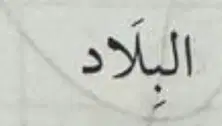 البِلَاد